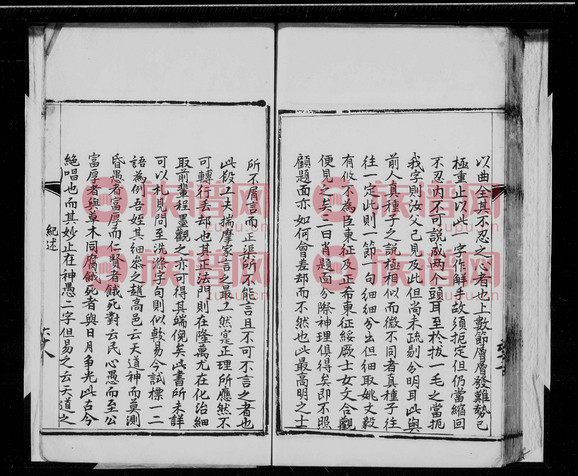 以曲全其不忍之心者也上數節層層發難勢已
極重止以此一字作解手故須扼定但仍當縮回
不忍內不可說成兩个頭耳至於拔一毛之當扼
我字則汝父已見及此但尚未疏剔分明耳此與
前人真種子之說極相似而微不同者真種子往
往一定此則一節一句細細分出但細取姚文毅
有攸不為臣東征及正希東征綏厥士女文合觀
便見之矣三日肖題面分際神理俱得矣即不照
顧題面亦如何會差却而不然也此最高明之士
所不屑言而正渠所不能言且不可不言之者也
此段工夫揣摩家言之最工然寔正理所應然不
可轉行丟却也其正法門則在隆萬尤在化治細
取前輩程墨觀之亦可得其端倪矣此書所未詳
可以札見問至洗滌字句則似較易今試標一二
語為例吾姪其細參之趙高邑云大道神而莫測
昏愚者富厚而仁賢者餓死對云民心愚而至公
富厚者與草木同腐餓死者與日月爭光此古今
絕唱也而其妙止在神愚二字但易之云大道之
紀述
族譜网